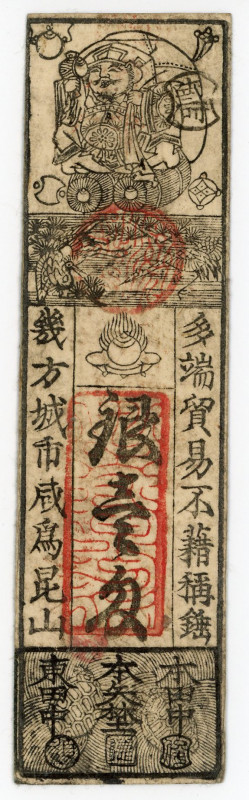 多端貿易不藉稱錘
銀壹匁
幾方城市咸爲昆山
本田中
東田中